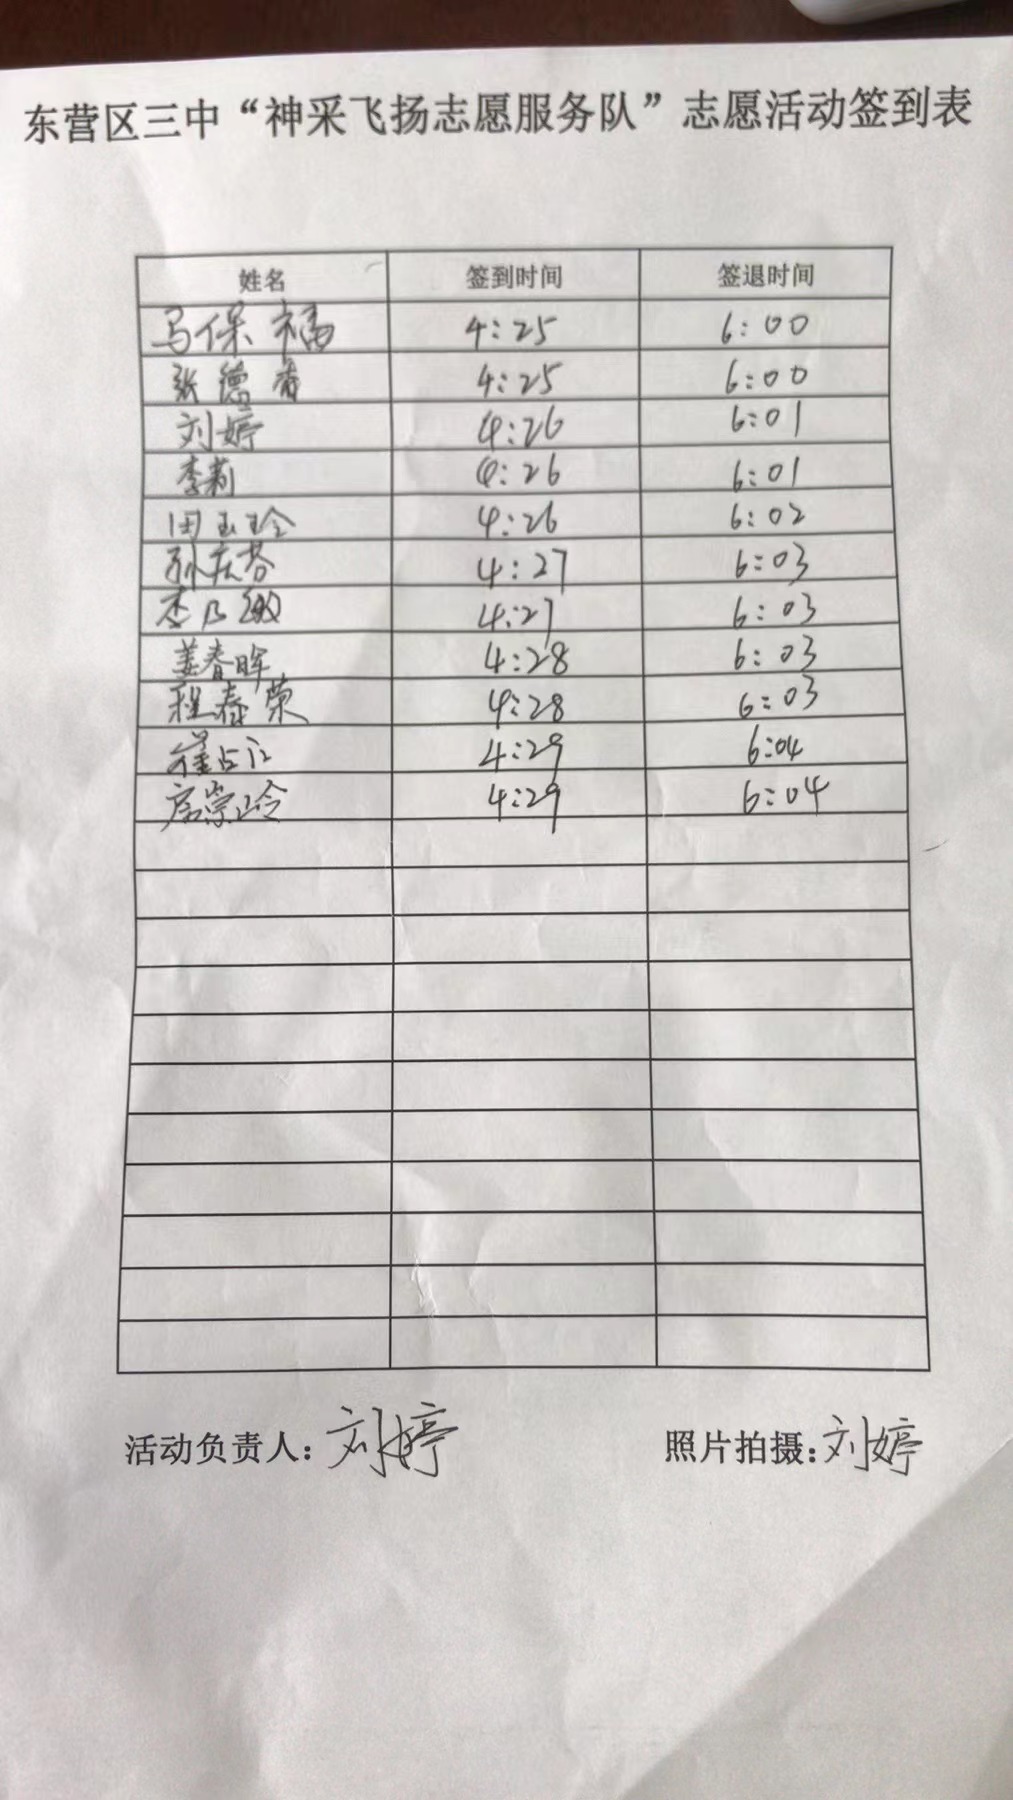 东营区三中“神采飞扬志愿服务队”志愿活动签到表
姓名 签到时间 签退时间
马保福 4:25 6:00
张德香 4:25 6:00
刘婷 4:26 6:01
李莉 4:26 6:01
田玉玲 4:26 6:02
孙庆芬 4:27 6:03
李乃敏 4:27 6:03
姜春晖 4:28 6:03
程泰荣 4:28 6:03
崔占江 4:29 6:04
崇玲 4:29 6:04
活动负责人:刘婷 照片拍摄:刘婷